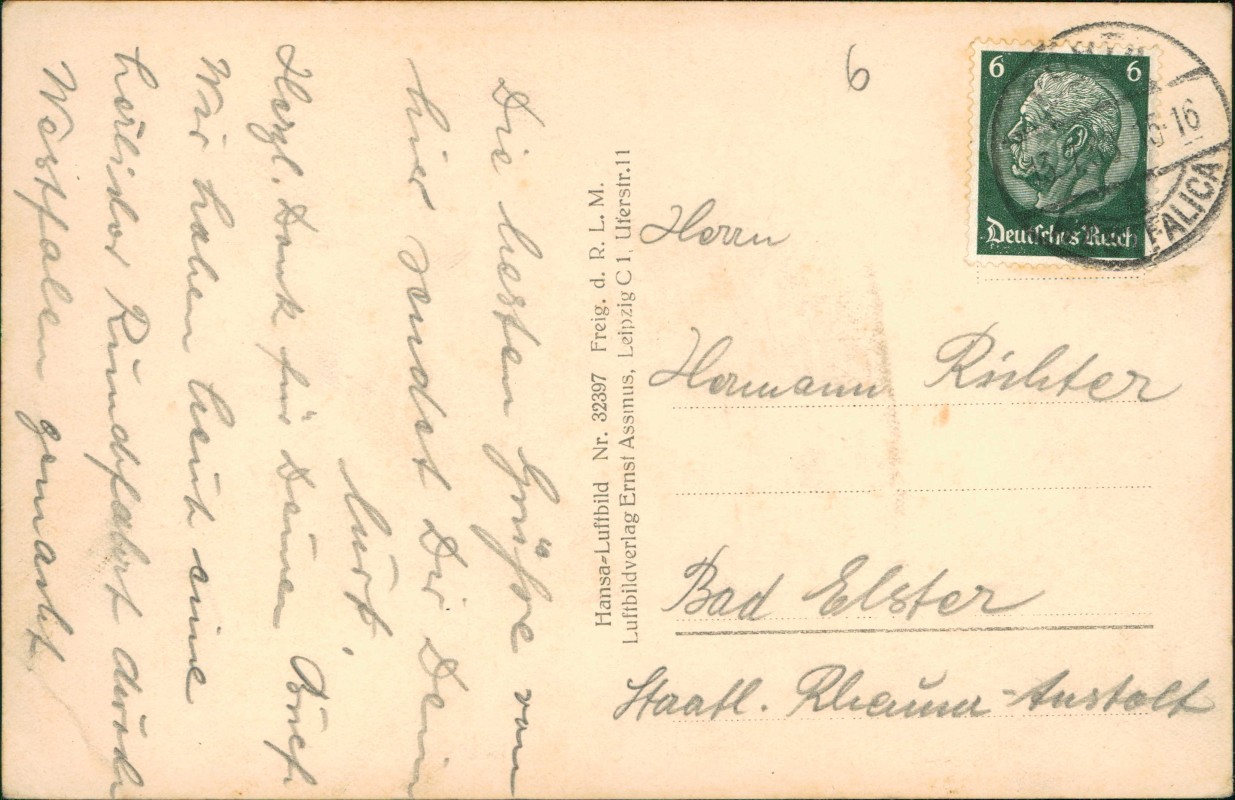 Die besten Grüße von
hier sendet Dir Dein
Kurt.
Herzl. Dank für Deinen Brief.
Wir haben heut eine
Rundfahrt durch
Westfalen gemacht.
Hansa-Luftbild Nr. 32397 Freig. d. R. L. M.
Luftbildverlag Ernst Assmus, Leipzig C 1, Uferstr. 11
6
6 6
Deutsches Reich
5-16
FALICA
Herrn
Hermann Richter
Bad Elster
Staatl. Rheuma-Anstalt